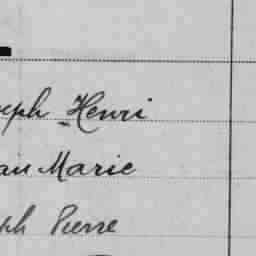 eph Henri
an Marie
ph Pierre